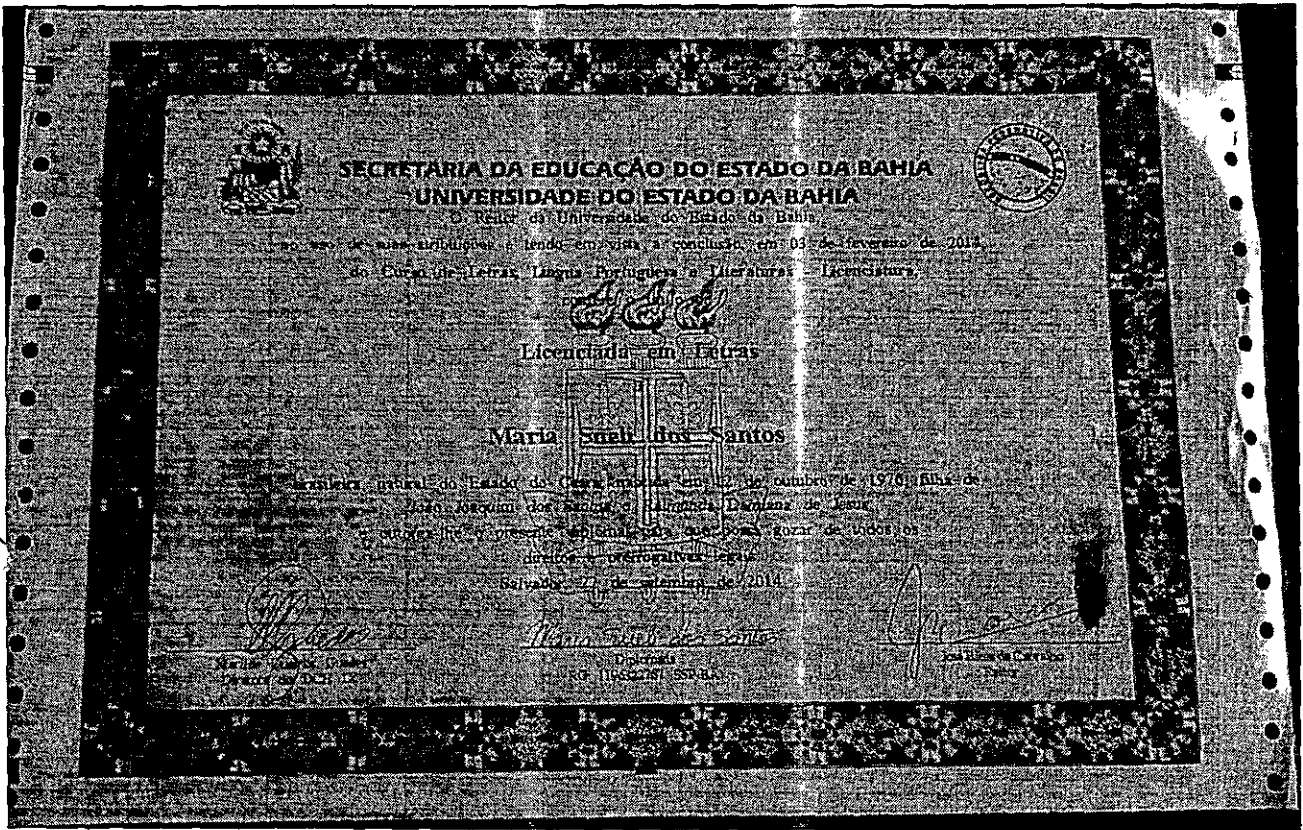 SECRETARIA DA EDUCAÇÃO DO ESTADO DA BAHIA
UNIVERSIDADE DO ESTADO DA BAHIA
O Reitor da Universidade do Estado da Bahia,
no uso de suas atribuições e tendo em vista a conclusão, em 03 de fevereiro de 2014,
do Curso de Letras, Língua Portuguesa e Literaturas - Licenciatura,
Licenciada em Letras
Maria Sueli dos Santos
brasileira, natural do Estado do Ceará, nascida em de outubro de filha de
João Joaquim dos Santos e Raimunda Damiana de Jesus
e outorga-lhe o presente diploma, para que possa gozar de todos os
direitos e prerrogativas legais.
Salvador, 22 de setembro de 2014.
Maria Sueli dos Santos
Diplomada
RG SSP-BA
José Bites de Carvalho
Reitor
Diretor do DCH IX